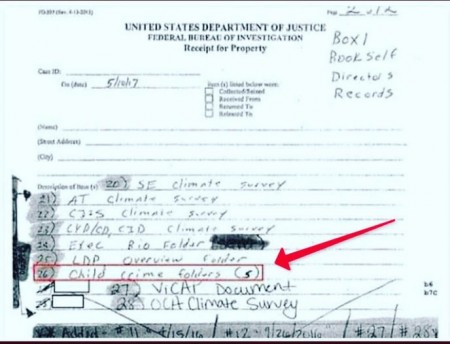 FD-597 (Rev. 4-13-2015)
Page 2 of 2
UNITED STATES DEPARTMENT OF JUSTICE
FEDERAL BUREAU OF INVESTIGATION
Receipt for Property
Box 1
Bookself
Director's
Records
Case ID:
On (date) 5/10/17
item (s) listed below were:
Collected/Seized
Received From
Returned To
Released To
(Name)
(Street Address)
(City)
Description of Item (s): 20) SE climate survey
21) AT climate survey
22) CJIS climate survey
23) CYD/CD, CID Climate survey
24) Exec Bio Folder
25) LDP overview folder
26) Child crime folders (5)
27) ViCAP Document
28) OCH Climate Survey
b6
b7C
Added - #11 - 4/15/16 #12 - 7/26/2016 #27 #28